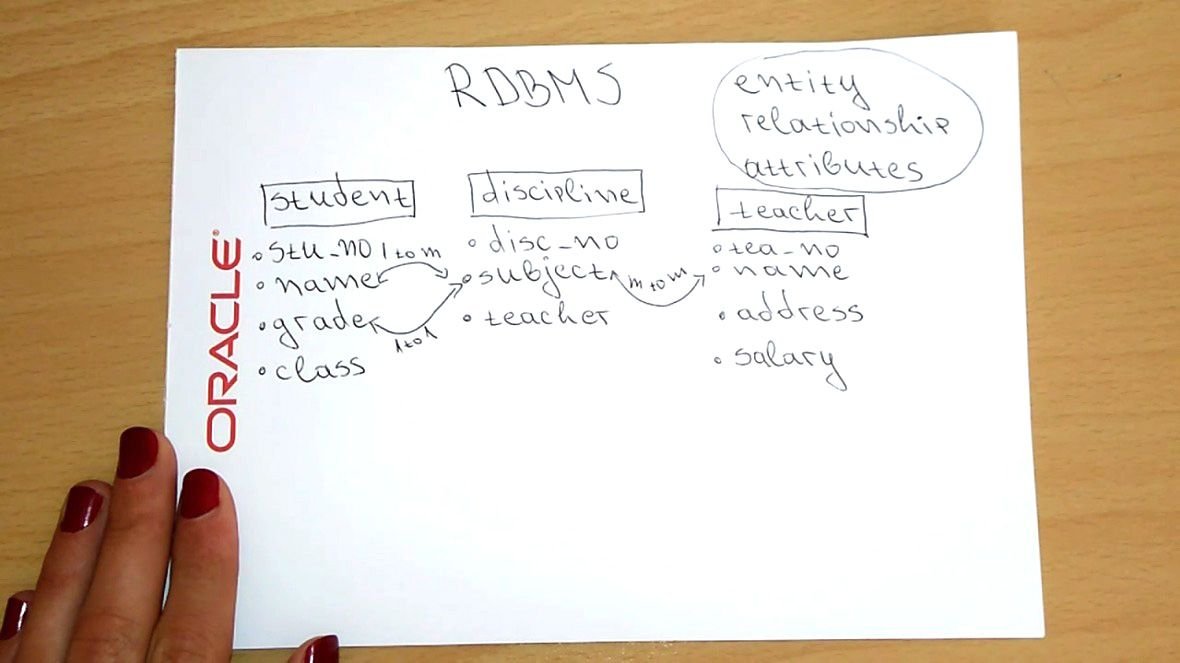 RDBMS
entity
relationship
attributes
student
• stu_no
• name
• grade
• class
1 to m
1 to 1
discipline
• disc_no
• subject
• teacher
m to m
teacher
• tea_no
• name
• address
• salary
ORACLE®